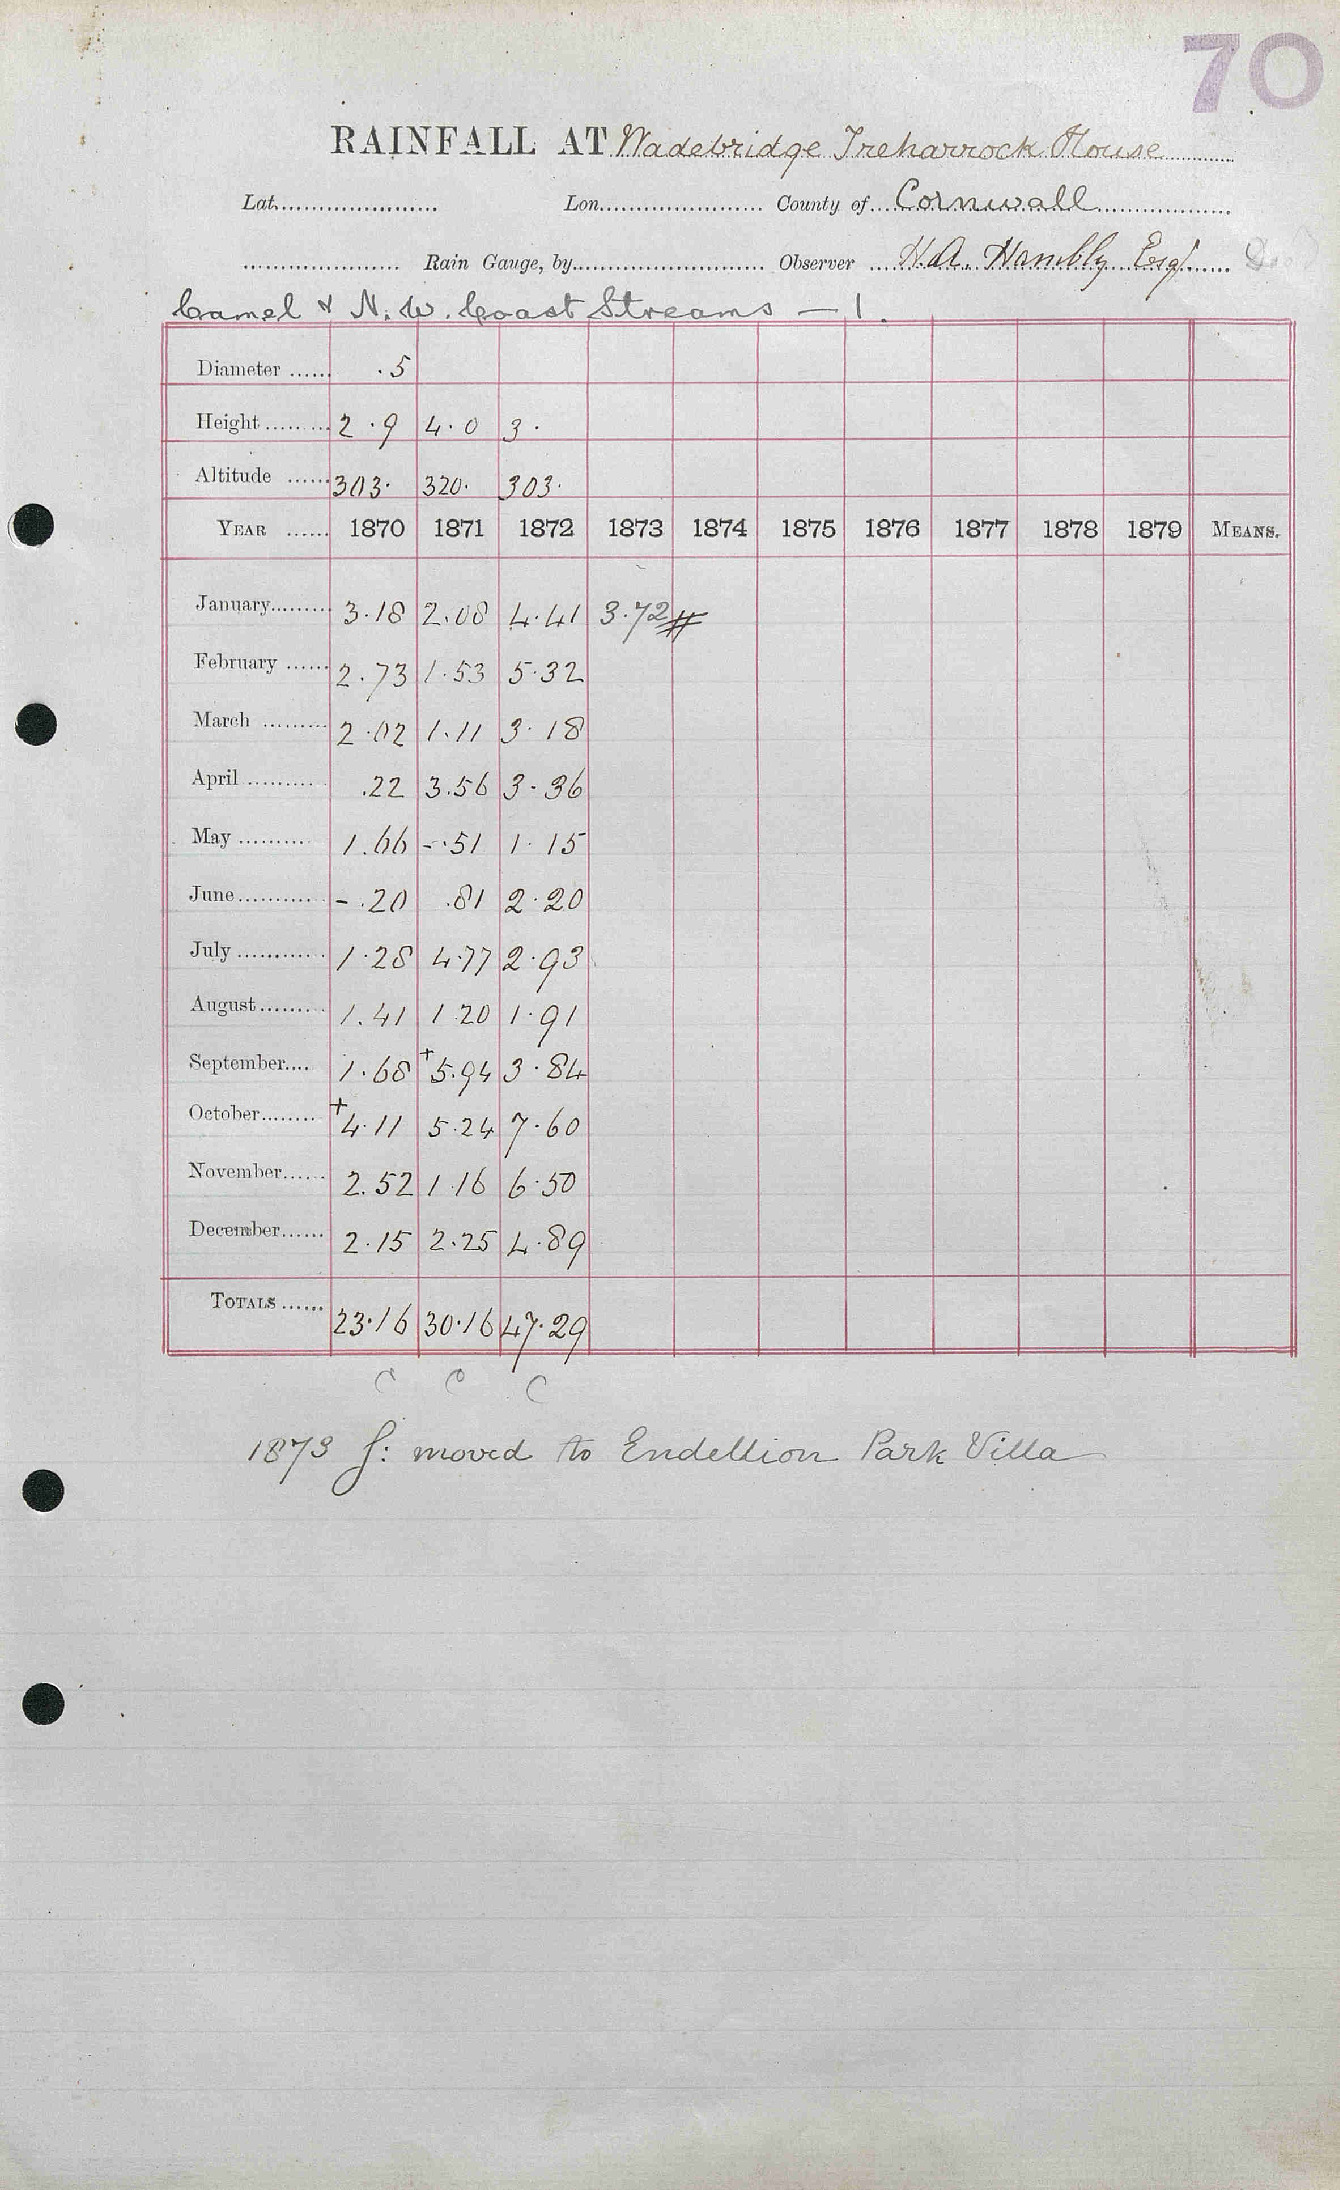 70
RAINFALL AT Wadebridge Treharrock House
Lat. Lon. County of Cornwall
Rain Gauge, by Observer H.A. Hambly Esq.
Camel & N.W. Coast Streams — 1.
Diameter .5
Height 2.9 4.0 3.
Altitude 303. 320. 303.
YEAR 1870 1871 1872 1873 1874 1875 1876 1877 1878 1879 MEANS.
January 3.18 2.08 4.41 3.72 #
February 2.73 1.53 5.32
March 2.02 1.11 3.18
April .22 3.56 3.36
May 1.66 -.51 1.15
June -.20 .81 2.20
July 1.28 4.77 2.93
August 1.41 1.20 1.91
September 1.68 +5.94 3.84
October +4.11 5.24 7.60
November 2.52 1.16 6.50
December 2.15 2.25 4.89
TOTALS 23.16 30.16 47.29
C C C
1873 g: moved to Endellion Park Villa